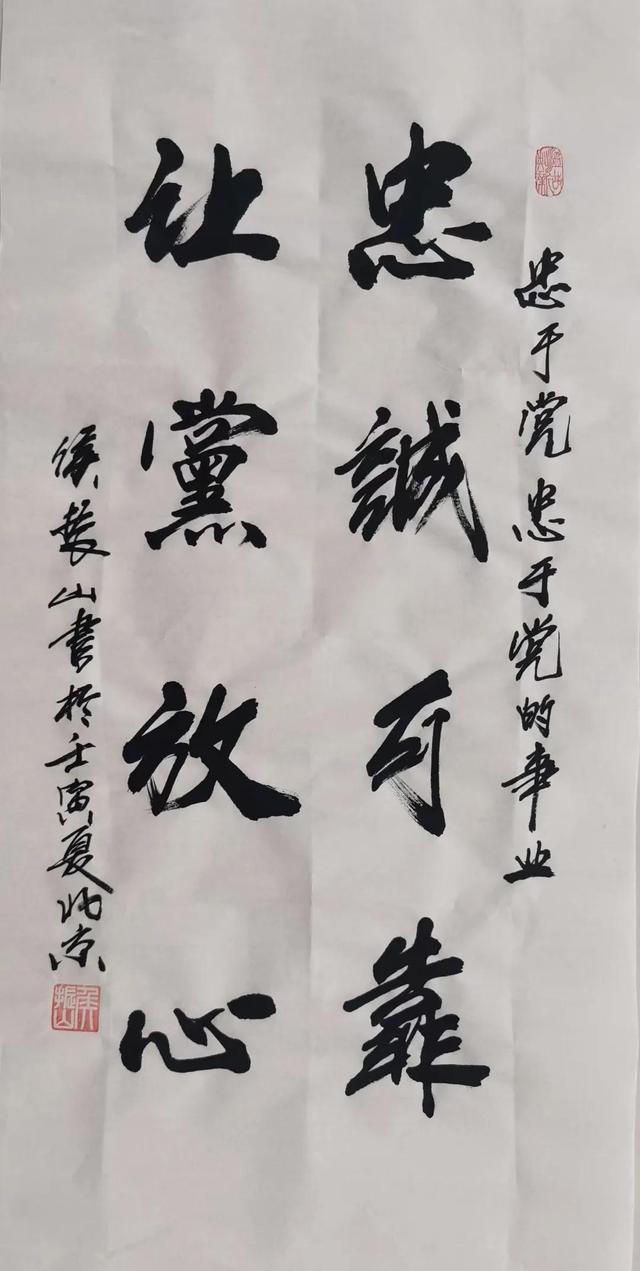 忠于党忠于党的事业
忠誠可靠
让黨放心
侯振山書於壬寅夏北京